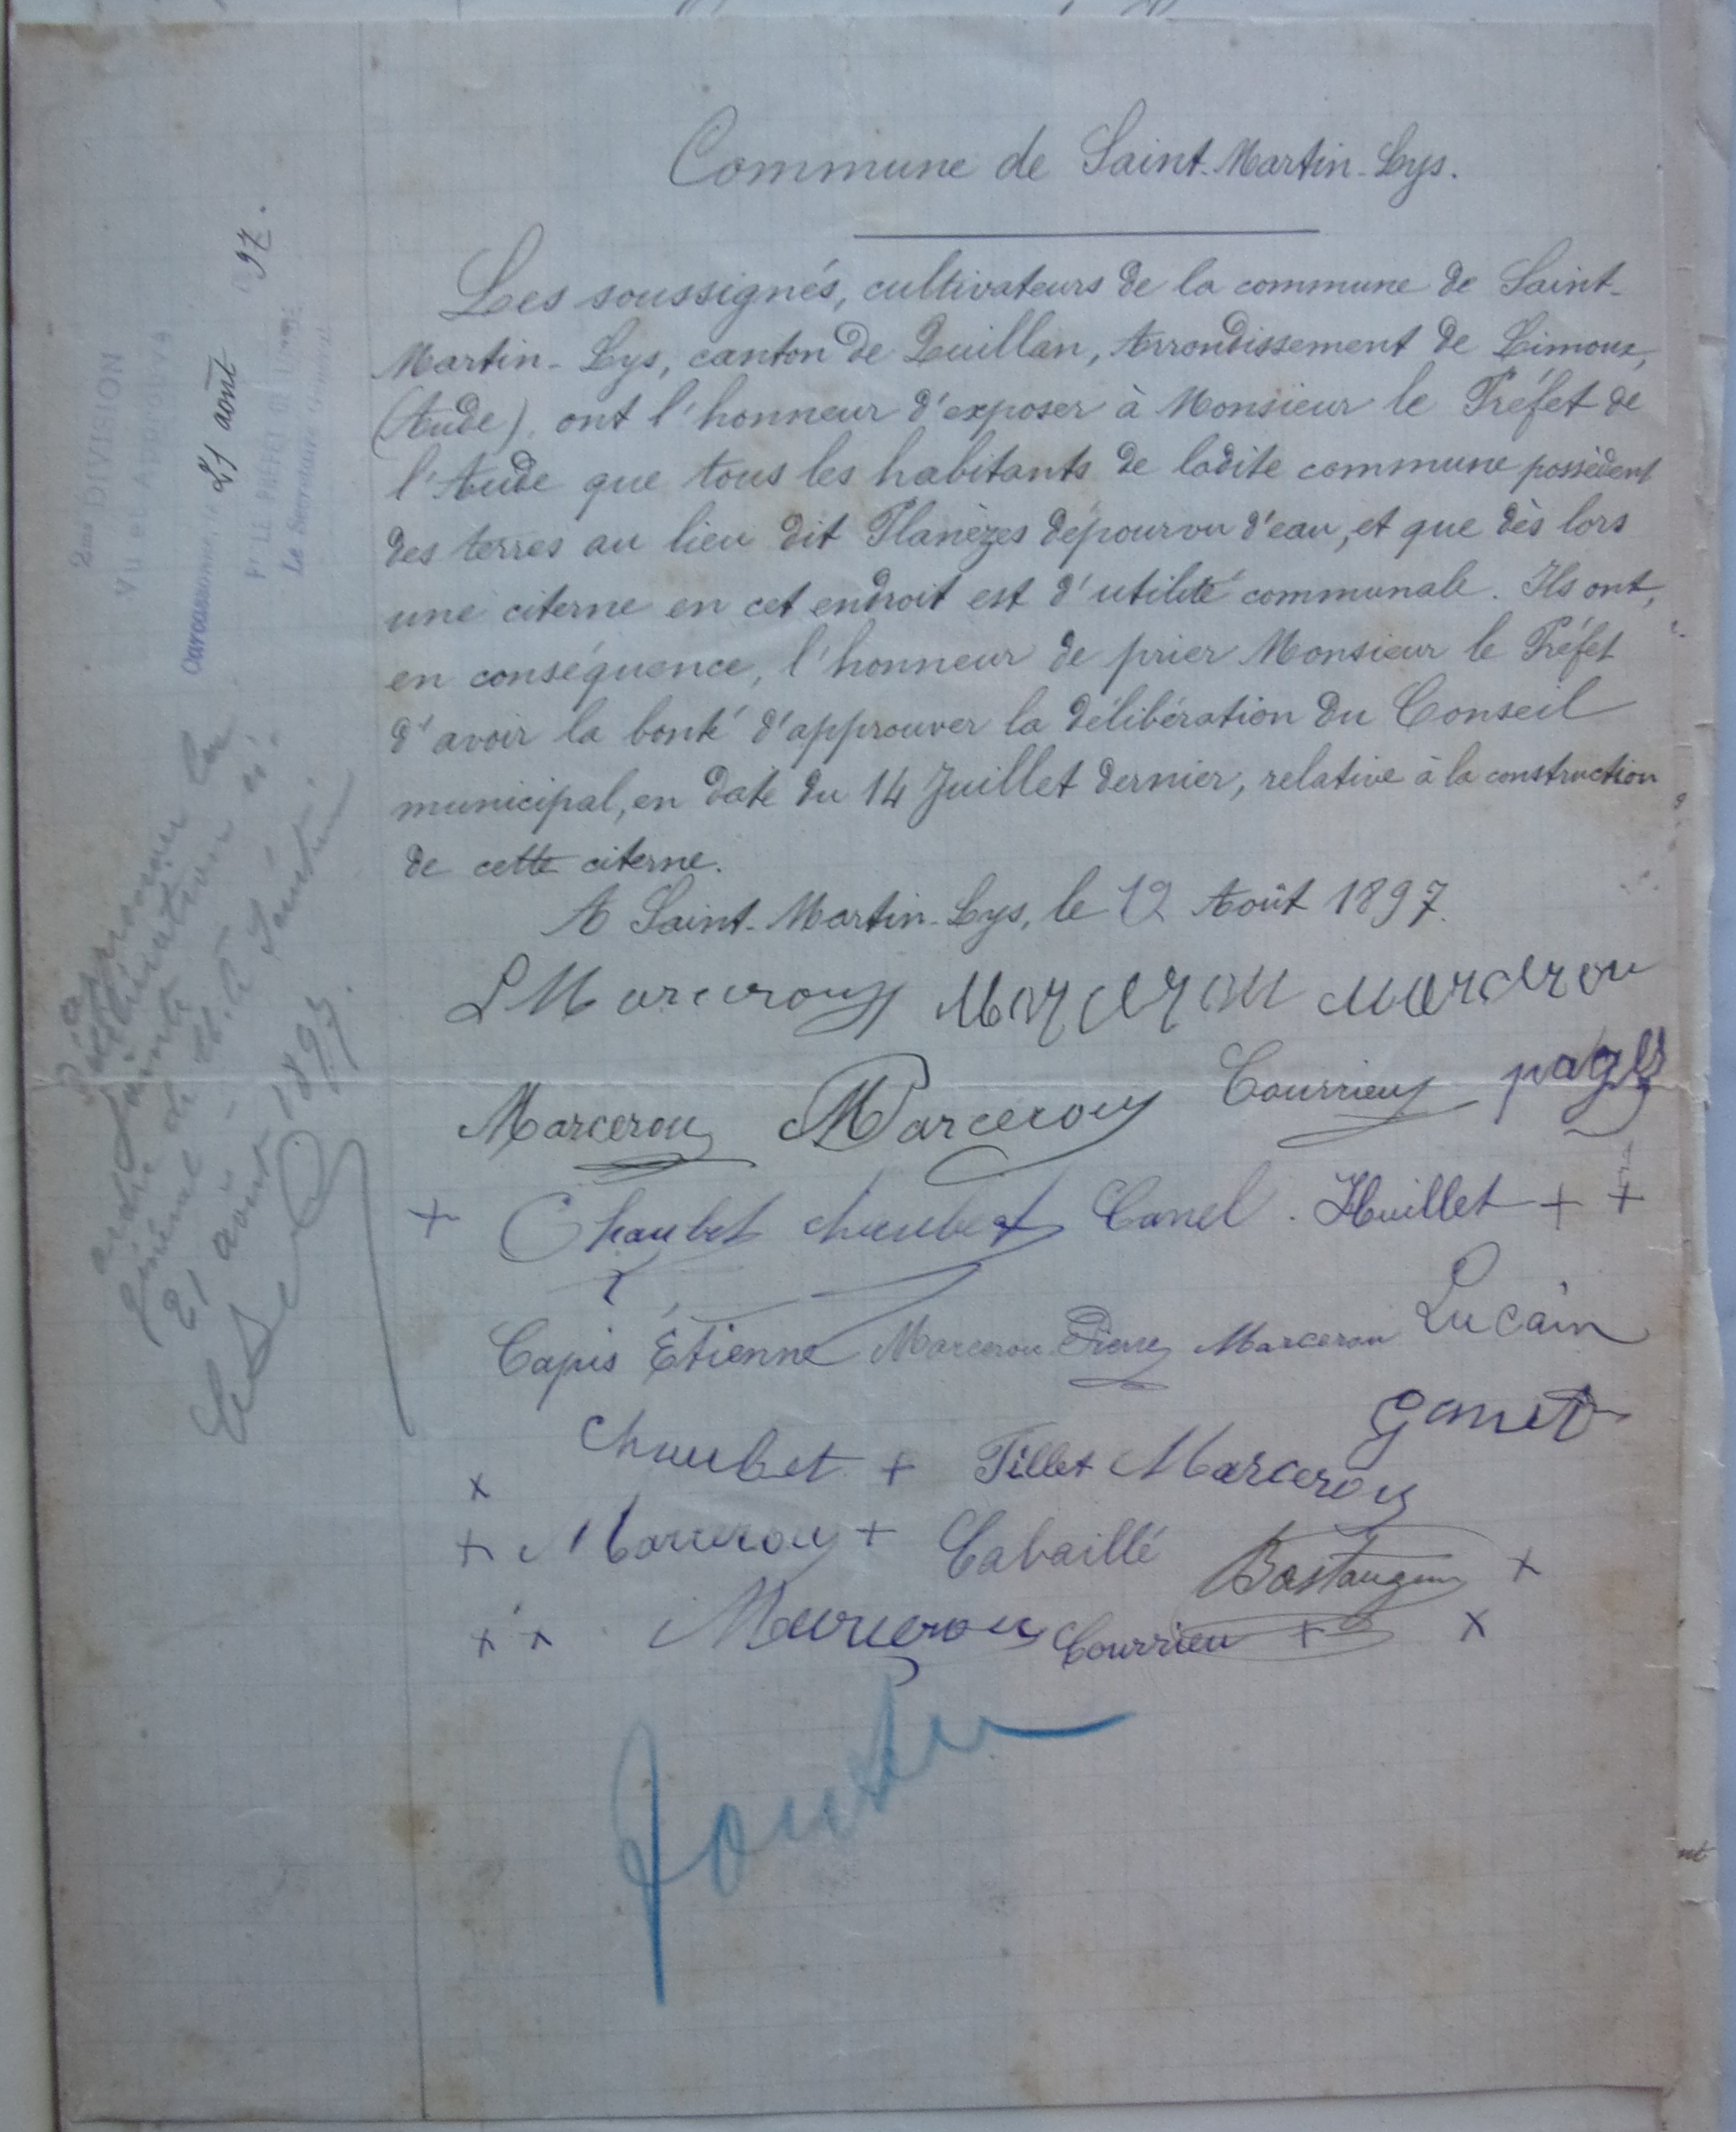 Commune de Saint-Martin-Lys.
Les soussignés, cultivateurs de la commune de Saint-
Martin-Lys, canton de Quillan, Arrondissement de Limoux,
(Aude), ont l'honneur d'exposer à Monsieur le Préfet de
l'Aude que tous les habitants de ladite commune possèdent
des terres au lieu dit Planèzes dépourvu d'eau, et que dès lors
une citerne en cet endroit est d'utilité communale. Ils ont,
en conséquence, l'honneur de prier Monsieur le Préfet
d'avoir la bonté d'approuver la délibération du Conseil
municipal, en date du 14 Juillet dernier, relative à la construction
de cette citerne.
A Saint-Martin-Lys, le 12 Août 1897.
L Marcerou Marcerou Marcerou
Marcerou Marcerou Courrieu pagès
+ Chaubet chaubet Canel . Huillet + +
Capis Étienne Marcerou Pierre Marcerou Lucain
Gamet
x chaubet + Tillet Marcerou
+ Marcerou + Cabaillé Bastaugou +
x x Marcerou Courrieu + x
2me DIVISION
Vu et Approuvé
Carcassonne, le 21 août 97.
Pr LE PRÉFET
Le Secrétaire Général
approuver la
délibération ci-
jointe
21 août 1897.